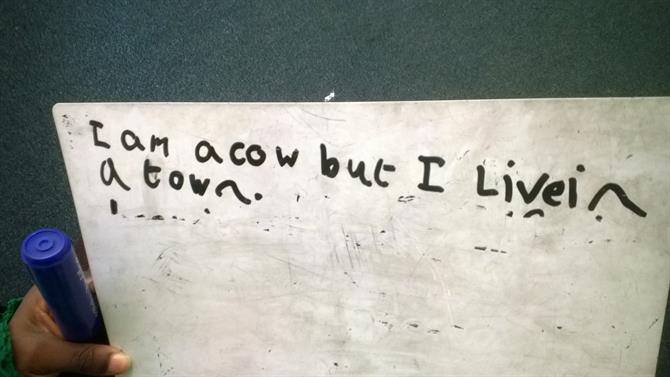 I am a cow but I Live in
a town.